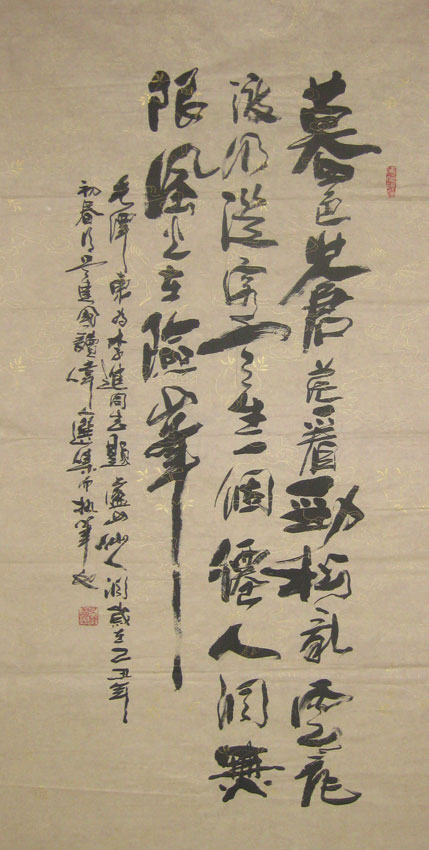 暮色蒼茫看勁松乱雲飛
渡仍從容天生一個僊人洞無
限風光在險峯
毛澤東為李進同志題盧山仙人洞歲在乙丑年
初春月國讀偉人選集而執筆